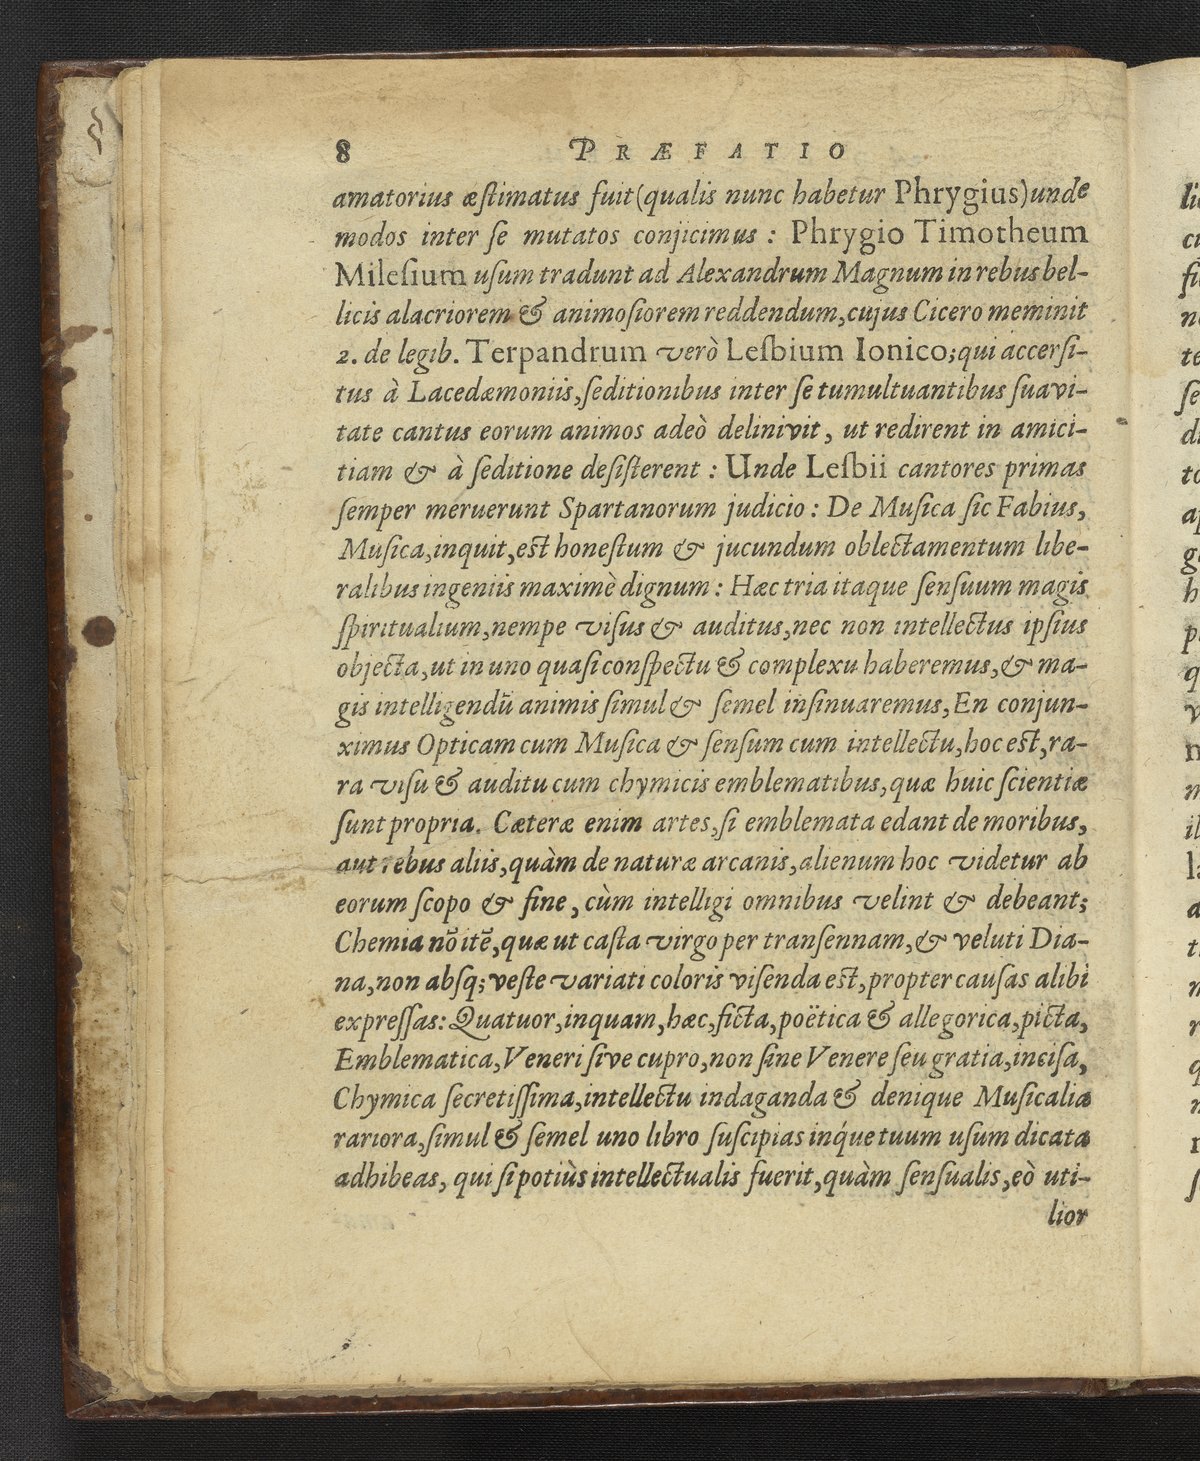 8 PRÆFATIO
amatorius æſtimatus fuit (qualis nunc habetur Phrygius) unde
modos inter ſe mutatos conjicimus : Phrygio Timotheum
Mileſium uſum tradunt ad Alexandrum Magnum in rebus bel-
licis alacriorem & animoſiorem reddendum, cujus Cicero meminit
2. de legib. Terpandrum verò Leſbium Ionico; qui accerſi-
tus à Lacedæmoniis, ſeditionibus inter ſe tumultuantibus ſuavi-
tate cantus eorum animos adeò delinivit, ut redirent in amici-
tiam & à ſeditione deſiſterent : Unde Leſbii cantores primas
ſemper meruerunt Spartanorum judicio : De Muſica ſic Fabius,
Muſica, inquit, est honeſtum & jucundum oblectamentum libe-
ralibus ingeniis maximè dignum : Hæc tria itaque ſenſuum magis
ſpiritualium, nempe viſus & auditus, nec non intellectus ipſius
objecta, ut in uno quaſi conſpectu & complexu haberemus, & ma-
gis intelligendū animis ſimul & ſemel inſinuaremus, En conjun-
ximus Opticam cum Muſica & ſenſum cum intellectu, hoc est, ra-
ra viſu & auditu cum chymicis emblematibus, quæ huic ſcientiæ
ſunt propria. Cæteræ enim artes, ſi emblemata edant de moribus,
aut rebus aliis, quàm de naturæ arcanis, alienum hoc videtur ab
eorum ſcopo & fine, cùm intelligi omnibus velint & debeant;
Chemia nō itē, quæ ut caſta virgo per tranſennam, & veluti Dia-
na, non abſq; veſte variati coloris viſenda est, propter cauſas alibi
expreſſas: Quatuor, inquam, hæc, ficta, poëtica & allegorica, picta,
Emblematica, Veneri ſive cupro, non ſine Venere ſeu gratia, inciſa,
Chymica ſecretiſſima, intellectu indaganda & denique Muſicalia
rariora, ſimul & ſemel uno libro ſuſcipias inq́ue tuum uſum dicata
adhibeas, qui ſi potiùs intellectualis fuerit, quàm ſenſualis, eò uti-
lior